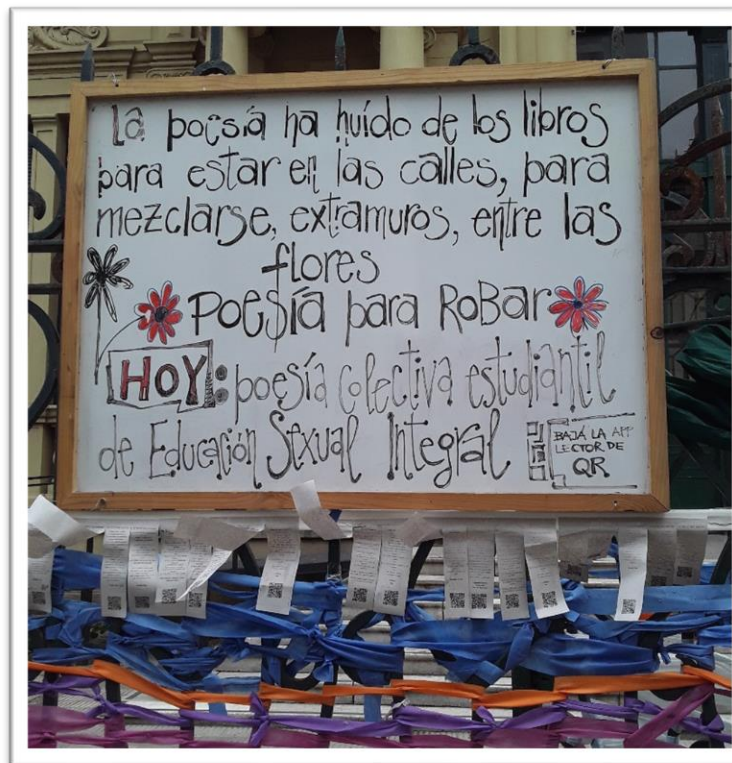 La poesía ha huído de los libros
para estar en las calles, para
mezclarse, extramuros, entre las
flores
Poesía para RoBar
HOY: poesía colectiva estudiantil
de Educación Sexual Integral
BAJÁ LA APP
LECTOR DE
QR